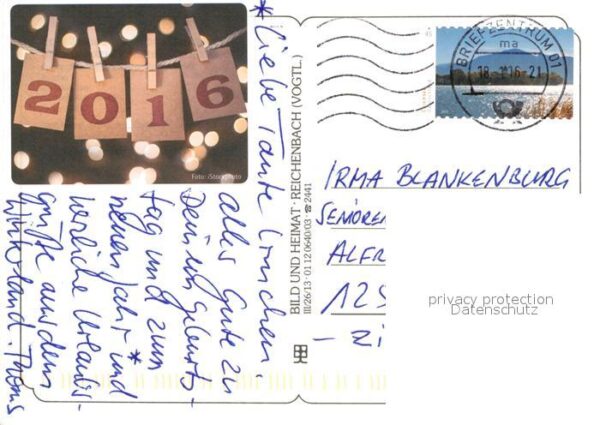 2016
Foto: iStockphoto
*Liebe Tante Irmchen,
alles Gute zu
Deinem Geburts-
tag und zum
neuen Jahr * und
herzliche Urlaubs-
grüße aus dem
Winterland. Thoms
BILD UND HEIMAT · REICHENBACH (VOGTL.)
III/26/13 · 01 12 0640/03 · ☎ 2441
BRIEFZENTRUM 01
ma
18.1.16-21
IRMA BLANKENBURG
SENIOREN
ALFR
12
privacy protection
Datenschutz